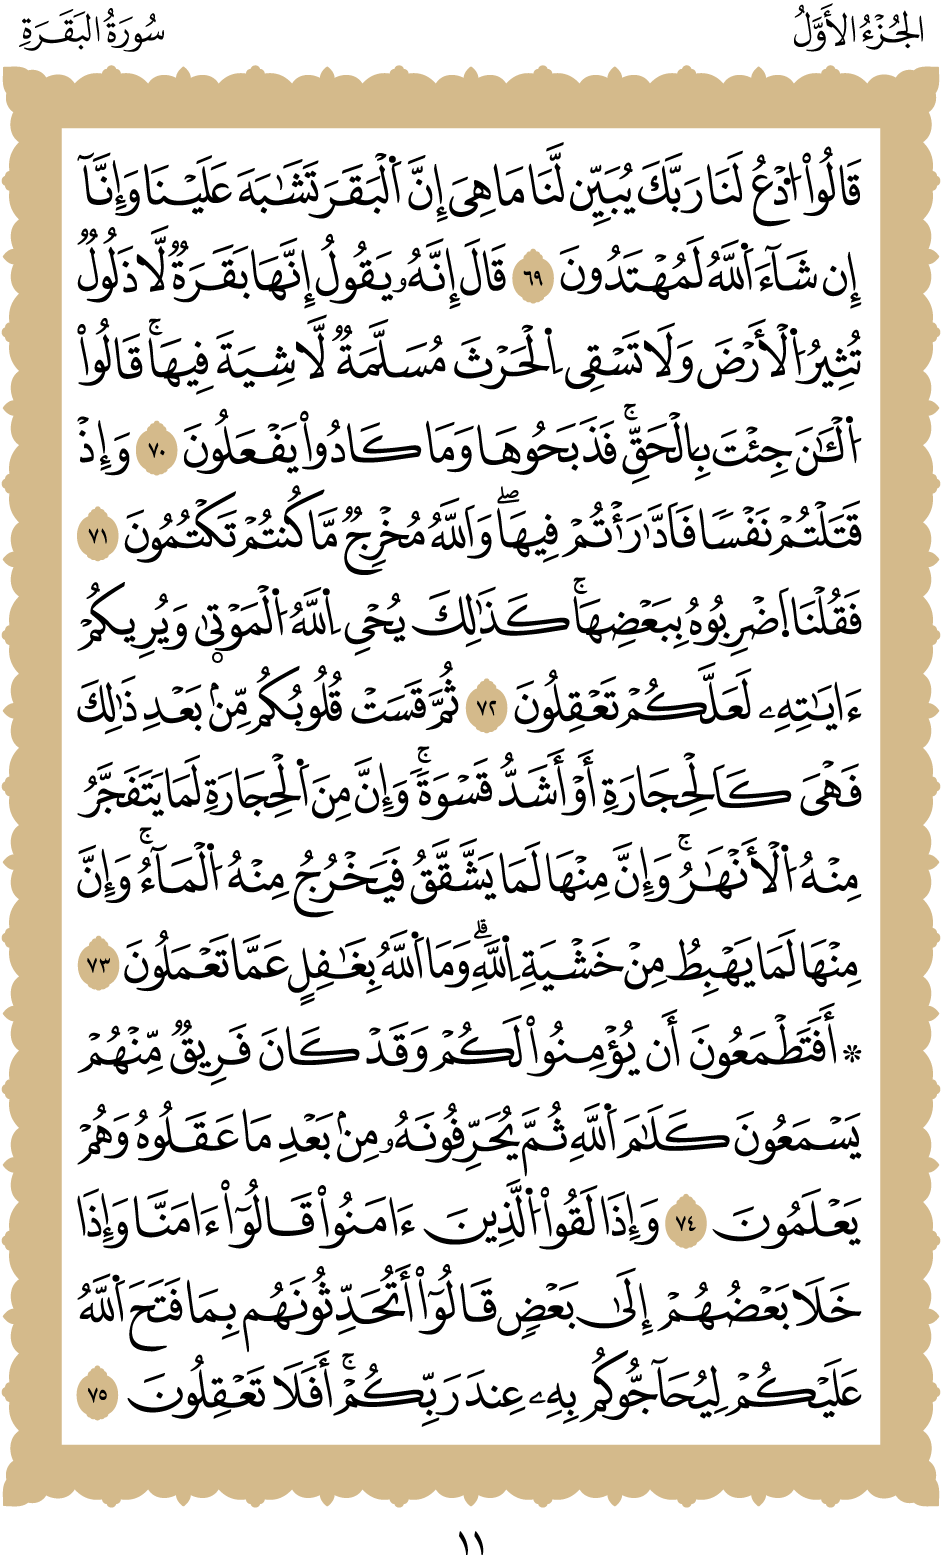 الجُزْءُ الأَوَّلُ
سُورَةُ البَقَرَةِ
قَالُواْ ٱدْعُ لَنَا رَبَّكَ يُبَيِّن لَّنَا مَا هِىَ إِنَّ ٱلْبَقَرَ تَشَٰبَهَ عَلَيْنَا وَإِنَّآ
إِن شَآءَ ٱللَّهُ لَمُهْتَدُونَ ٦٩ قَالَ إِنَّهُۥ يَقُولُ إِنَّهَا بَقَرَةٌ لَّا ذَلُولٌ
تُثِيرُ ٱلْأَرْضَ وَلَا تَسْقِى ٱلْحَرْثَ مُسَلَّمَةٌ لَّا شِيَةَ فِيهَاۚ قَالُواْ
ٱلْـَٰٔنَ جِئْتَ بِالْحَقِّۚ فَذَبَحُوهَا وَمَا كَادُواْ يَفْعَلُونَ ٧٠ وَإِذْ
قَتَلْتُمْ نَفْسًا فَٱدَّٰرَٰٔتُمْ فِيهَاۖ وَٱللَّهُ مُخْرِجٌ مَّا كُنتُمْ تَكْتُمُونَ ٧١
فَقُلْنَا ٱضْرِبُوهُ بِبَعْضِهَاۚ كَذَٰلِكَ يُحْىِ ٱللَّهُ ٱلْمَوْتَىٰ وَيُرِيكُمْ
ءَايَٰتِهِۦ لَعَلَّكُمْ تَعْقِلُونَ ٧٢ ثُمَّ قَسَتْ قُلُوبُكُم مِّنۢ بَعْدِ ذَٰلِكَ
فَهْىَ كَٱلْحِجَارَةِ أَوْ أَشَدُّ قَسْوَةًۚ وَإِنَّ مِنَ ٱلْحِجَارَةِ لَمَا يَتَفَجَّرُ
مِنْهُ ٱلْأَنْهَٰرُۚ وَإِنَّ مِنْهَا لَمَا يَشَّقَّقُ فَيَخْرُجُ مِنْهُ ٱلْمَآءُۚ وَإِنَّ
مِنْهَا لَمَا يَهْبِطُ مِنْ خَشْيَةِ ٱللَّهِۗ وَمَا ٱللَّهُ بِغَٰفِلٍ عَمَّا تَعْمَلُونَ ٧٣
۞ أَفَتَطْمَعُونَ أَن يُؤْمِنُواْ لَكُمْ وَقَدْ كَانَ فَرِيقٌ مِّنْهُمْ
يَسْمَعُونَ كَلَٰمَ ٱللَّهِ ثُمَّ يُحَرِّفُونَهُۥ مِنۢ بَعْدِ مَا عَقَلُوهُ وَهُمْ
يَعْلَمُونَ ٧٤ وَإِذَا لَقُواْ ٱلَّذِينَ ءَامَنُواْ قَالُوٓاْ ءَامَنَّا وَإِذَا
خَلَا بَعْضُهُمْ إِلَىٰ بَعْضٍ قَالُوٓاْ أَتُحَدِّثُونَهُم بِمَا فَتَحَ ٱللَّهُ
عَلَيْكُمْ لِيُحَآجُّوكُم بِهِۦ عِندَ رَبِّكُمْۚ أَفَلَا تَعْقِلُونَ ٧٥
١١